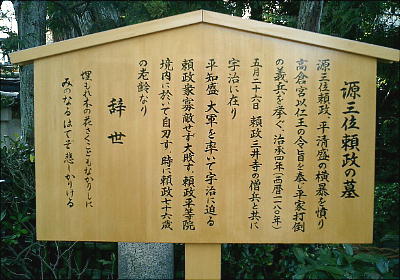 源三位頼政の墓
源三位頼政、平清盛の横暴を憤り
高倉宮以仁王の令旨を奉じ平家打倒
の義兵を挙ぐ、治承四年(西暦一一八〇年)
五月二十六日 頼政三井寺の僧兵と共に
宇治に在り
平知盛、大軍を率いて宇治に迫る
頼政衆寡敵せず大敗す、頼政平等院
境内に於いて自刃す、時に頼政七十六歳
の老齢なり
辞世
埋もれ木の花さくこともなかりしに
みのなるはてぞ悲しかりける